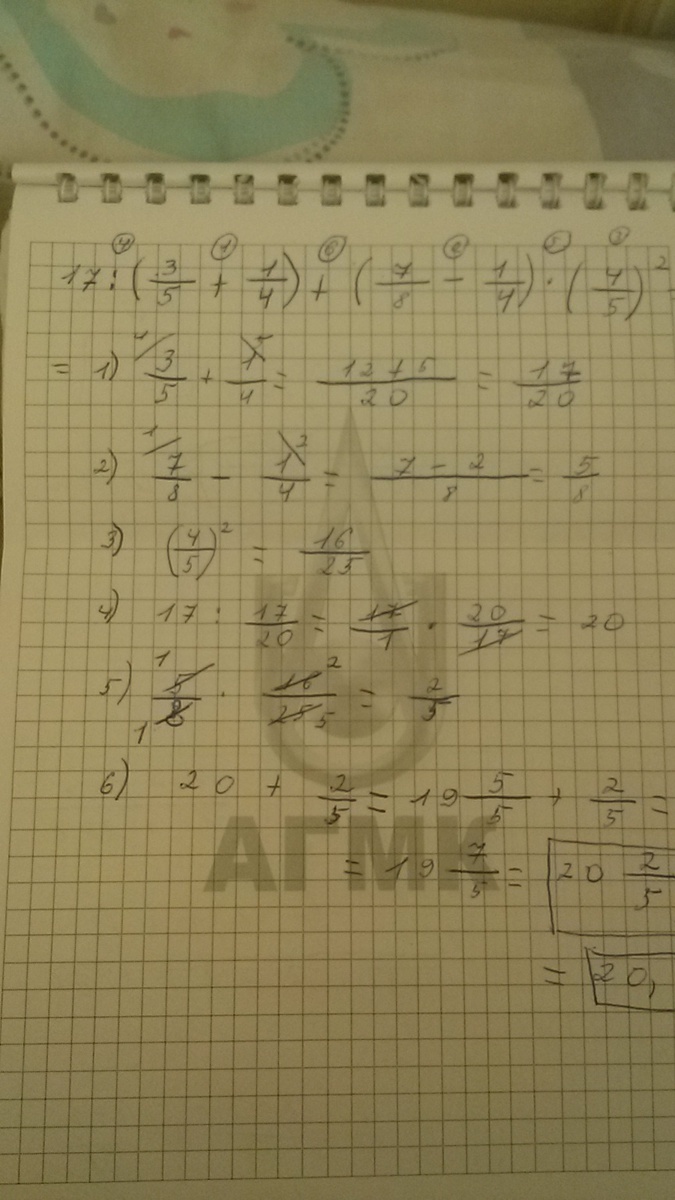 ④ ① ⑥ ② ⑤ ③
17 : (3/5 + 1/4) + (7/8 - 1/4) · (4/5)² =
= 1) ⁴/3/5 + 1\⁵/4 = 12+5/20 = 17/20
2) ¹/7/8 - 1\²/4 = 7-2/8 = 5/8
3) (4/5)² = 16/25
4) 17 : 17/20 = 17/1 · 20/17 = 20
5) ¹5/8₁ · 16²/25₅ = 2/5
6) 20 + 2/5 = 19 5/5 + 2/5 =
= 19 7/5 = 20 2/5
= 20,
АГМК